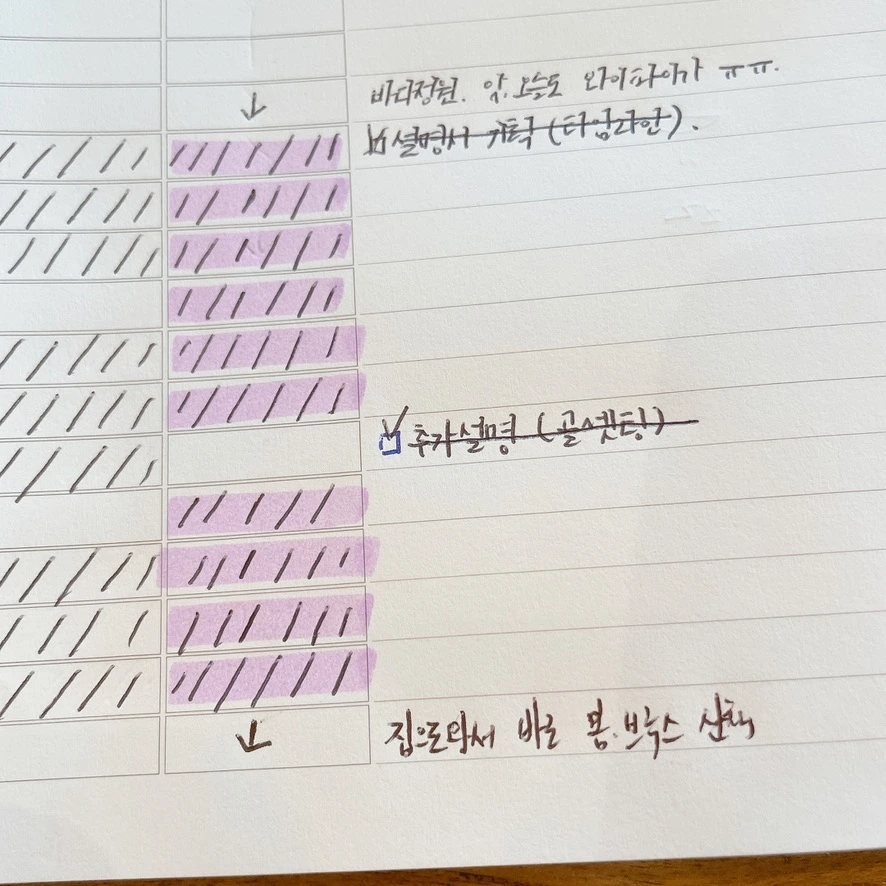 바다정원. 앗. 오늘도 와이파이가 ㅠㅠ.
설명서 기획 (타임라인).
추가설명 (골셋팅)
집으로와서 바로 봄.박스 산책